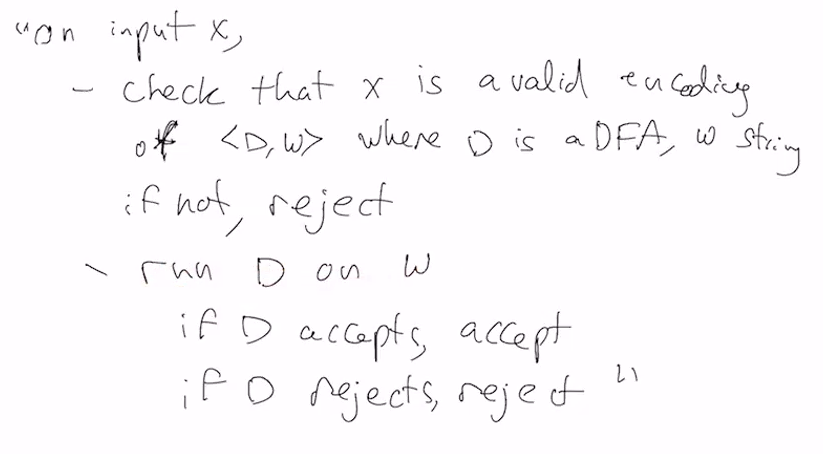 "on input x,
- check that x is a valid encoding
of <D,W> where D is a DFA, w string
if not, reject
- run D on W
if D accepts, accept
if D rejects, reject "